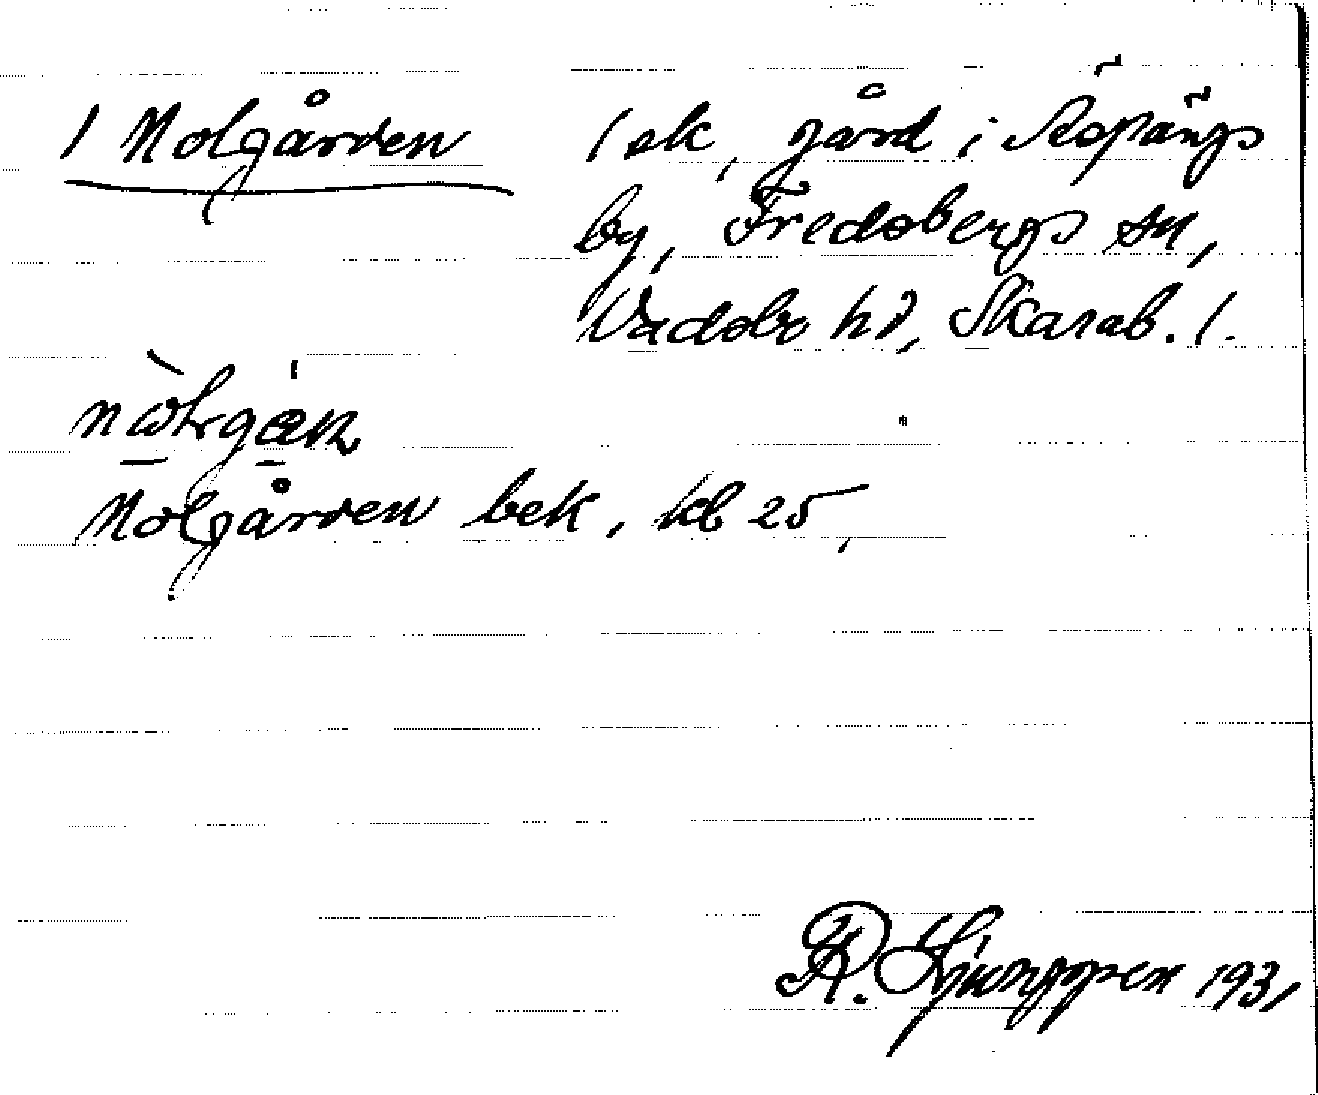 1 Nolgården
1 ek, gård i Äspängs
by, Fredsbergs sn,
Vadsbo hd, Skarab. l.
Nolgården bek, kb 25,
R. Ljunggren 1931